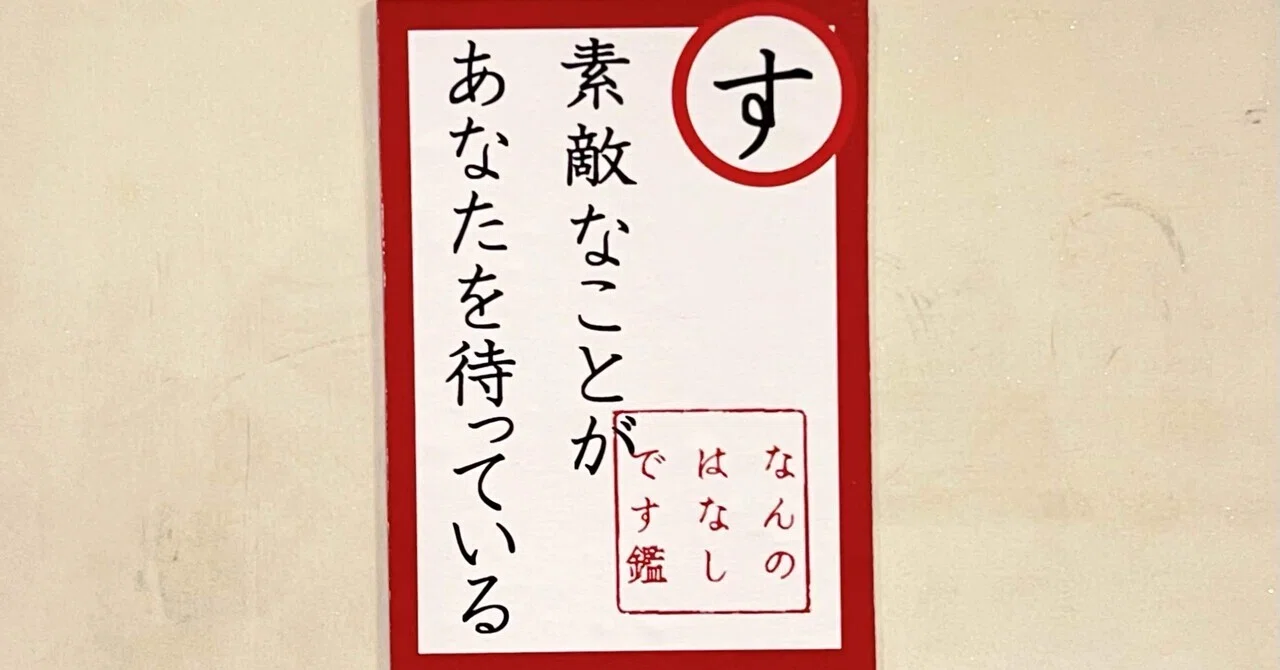 す
素敵なことが
あなたを待っている
なんの
はなし
です鑑